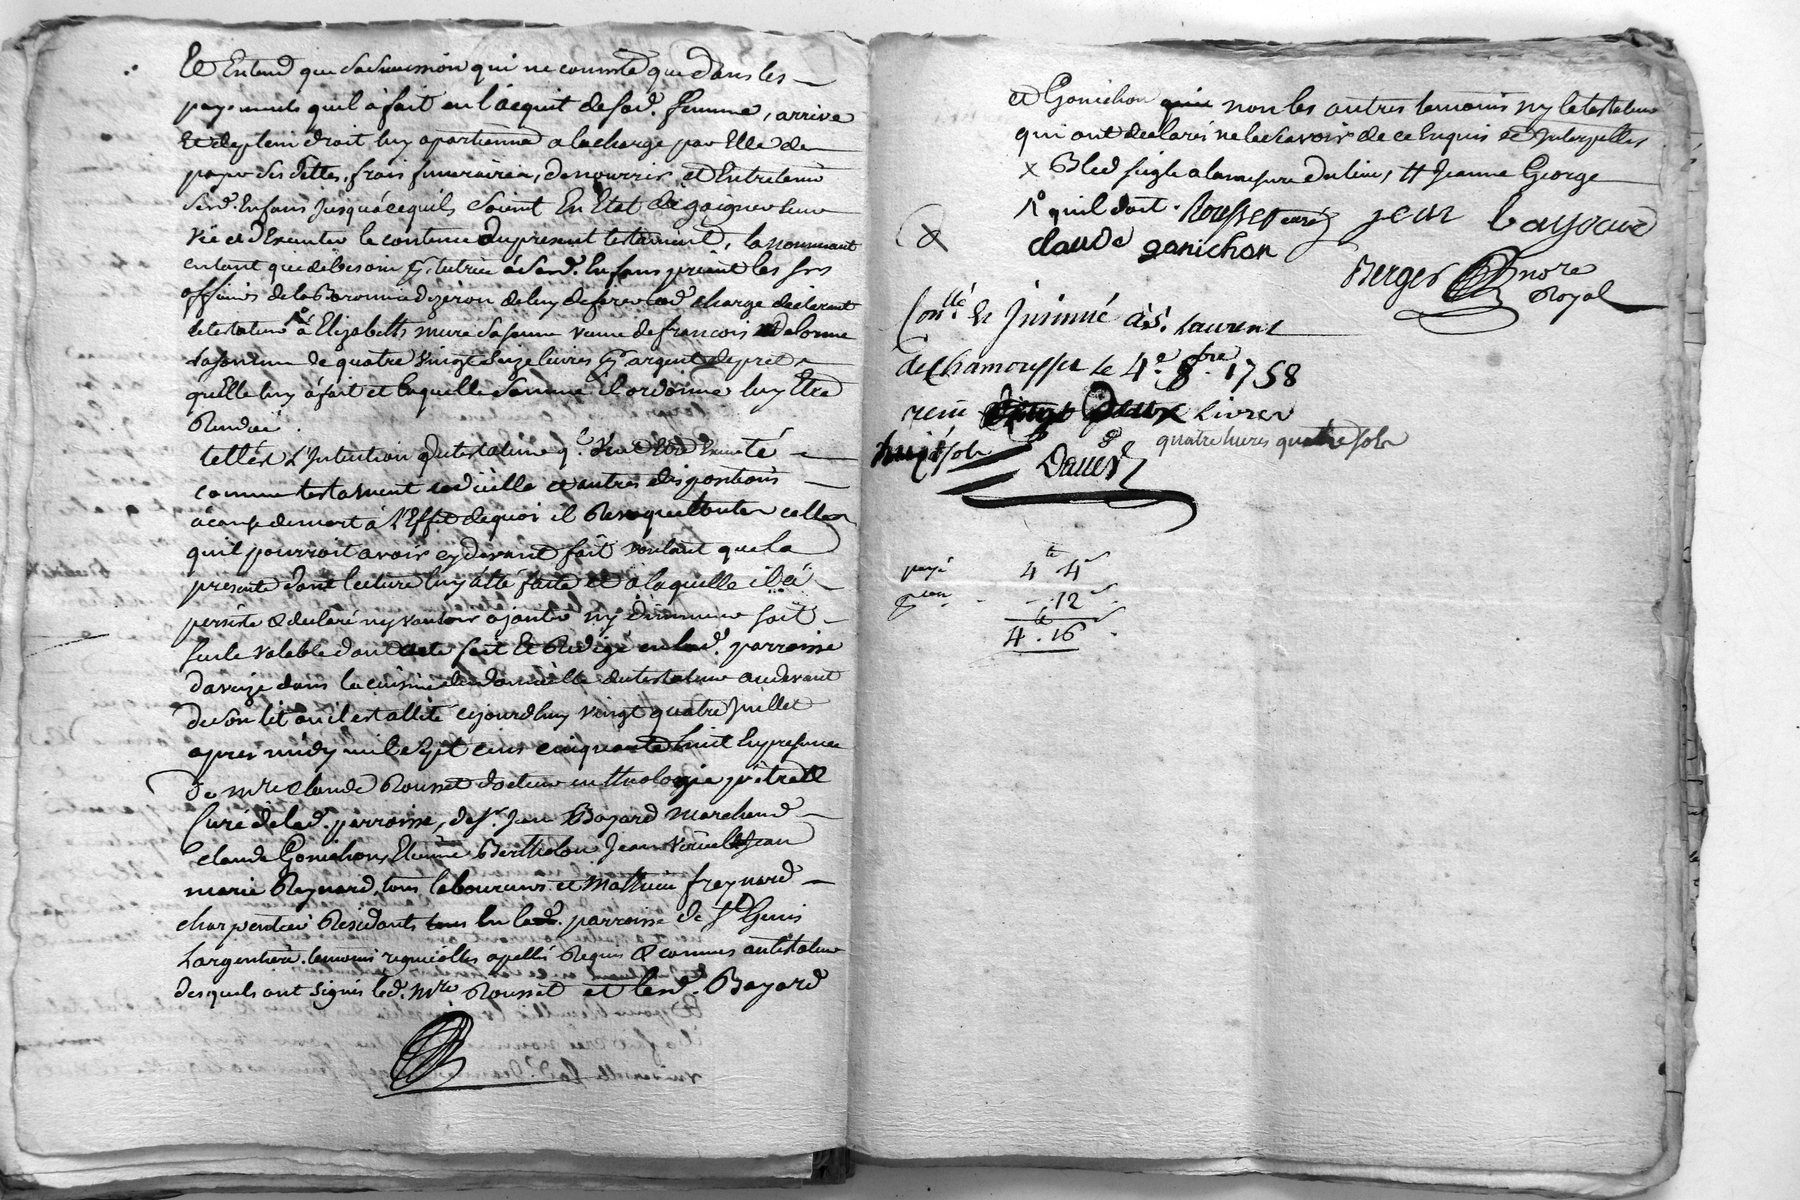 Et Entend que sa succession qui ne consiste que dans les
payements quil à fait en l'acquit de sad. femme, arrive
Et de plein droit luy apartienne a la charge par Elle de
payer ses dettes, frais funeraires, de nourrir et Entretenir
send. Enfans jusqu'à ce quils soient En Etat de gaigner leur
vie et d'Executer le contenu du present testament, la nommant
entant que de besoin tutrice à send. Enfans priant les srs
officiers de la Baronnie d'yzeron de luy deferer lad. charge declarant
le testateur à Elizabeth mure sa veuve de françois Delorme
la somme de quatre vingt seize livres argent de pret
quelle luy à fait et laquelle somme il ordonne luy Etre
Rendue.
telle est L'Intention du testateur q. Veut Etre Executé
comme testament codicille et autres dispositions
à cause de mort à l'Effet de quoi il Revoque toutes celles
quil pourroit avoir cy devant fait voulant que la
presente dont lecture luy à été faite et à laquelle il à
persisté & declaré ny vouloir ajouter ny diminuer soit
seule valable dont acte fait Et Redigé en lad. parroisse
daveize dans la cuisine du domicille du testateur au devant
de son lit ou il est allité cejourd'huy vingt quatre juillet
apres midy mil sept cens cinquante huit En presence
De mre Claude Rousset docteur en theologie prêtre &
Curé de lad. parroisse, de sr. Jean Bayard marchand
Claude Gonichon, Etienne Berthelon Jean Jean
marie Reynard, tous laboureurs et Mathieu freynard
charpentier Residants en lad. parroisse de St Genis
Largentiere. temoins requis apellés Requis & connus au testateur
desquels ont signés led. Mre Rousset et led. Bayard
et Gonichon non les autres temoins ny le testateur
qui ont declarés ne le scavoir de ce Enquis et Interpellés
x Bled seigle a la mesure du lieu, # Jeanne George
quil doit. Rousset curé jean bayard
claude gonichon
Berger nore
Royal
Conllé Et Insinué à St. Laurent
de Chamousset le 4e 8bre 1758
reçu livres
quatre livres quatre sols
huit sols Dauer
payé 4 4
12
4. 16